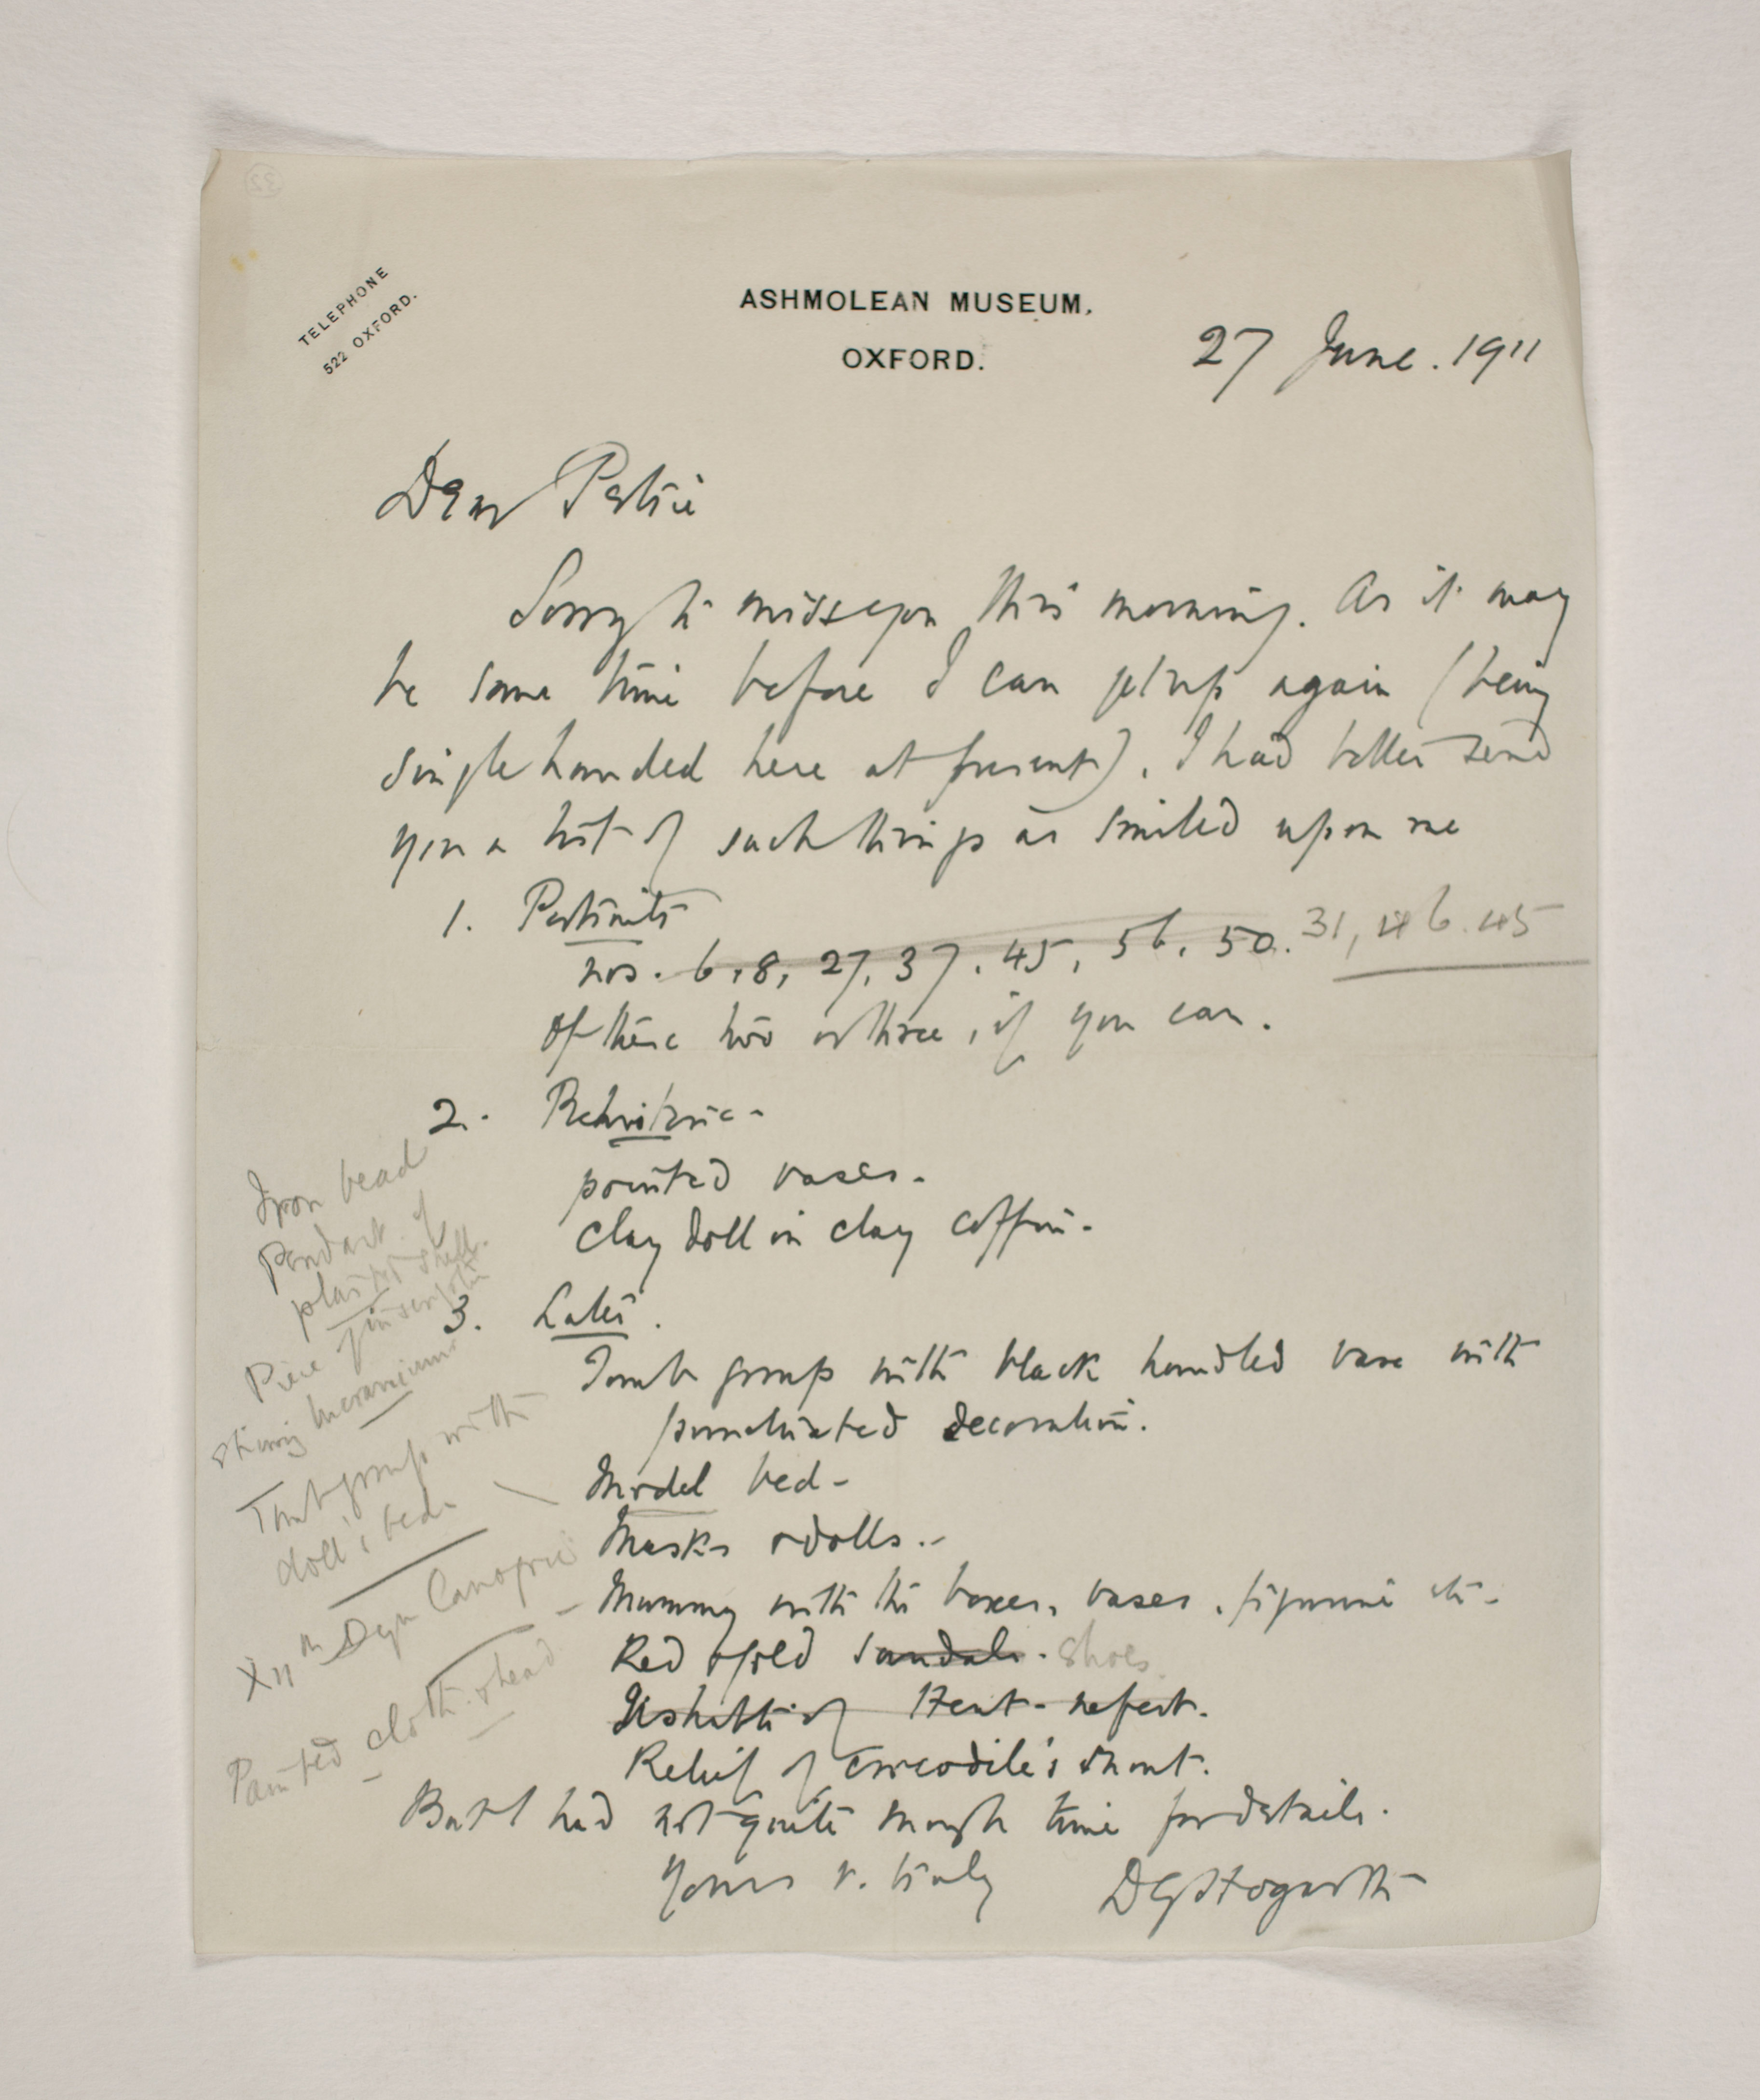 TELEPHONE
522 OXFORD.
ASHMOLEAN MUSEUM,
OXFORD.
27 June. 1911
Dear Petrie
Sorry to miss you this morning. As it may
be some time before I can get up again (being
single handed here at present), I had better send
you a list of such things as smiled upon me
1. Portraits
nos. 6, 8, 27, 37, 45, 56, 50. 31, 46. 45
Of these two or three, if you can.
2. Prehistoric -
painted vases.
Clay doll in clay coffin.
3. Later.
Tomb group with black handled vase with
punctuated decoration.
Model bed -
Masks & dolls. -
Mummy with the boxes, vases, figurine etc -
Red & gold sandals. shoes
Ushabti of Hent-nefert.
Relief of crocodile's snout.
But I had not quite enough time for details.
Yours v. truly DGHogarth
Iron bead
Pendant of
plaster shell.
Piece of inscription
string
Tomb group with
doll's bed.
XIIth Dyn Canopic
Painted cloth & head